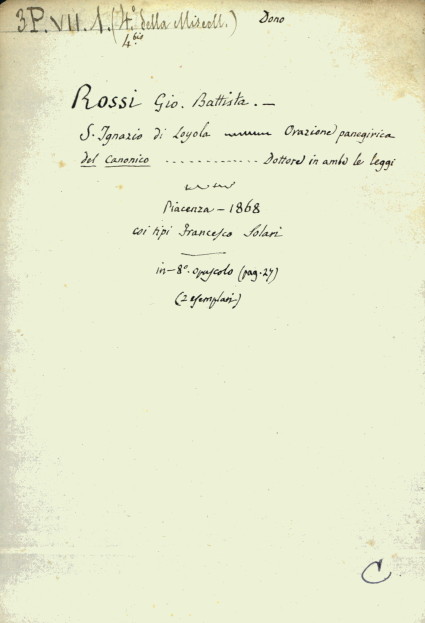 3P.VII.1.(4.° della Miscell.) Dono
4.bis
Rossi Gio. Battista. —
S. Ignazio di Loyola ~~~~ Orazione panegirica
del Canonico .............. Dottore in ambe le leggi
Piacenza – 1868
coi tipi Francesco Solari
in-8.° opuscolo (pag. 27)
(2 esemplari)
C